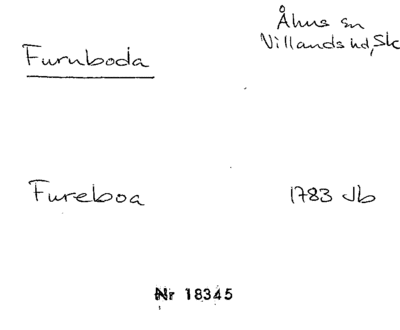 Åhus sn
Furuboda
Villands hd, Sk
Fureboa 1783 Jb
Nr 18345